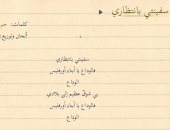 سفينتي بانتظاري
كلمات: جبر
ألحان وتوزيع:
سفينتي بانتظاري
فالوداع يا أبناء أورفليس
الوداع
بي شوق عظيم إلى بلادي
فالوداع يا أبناء أورفليس
الوداع